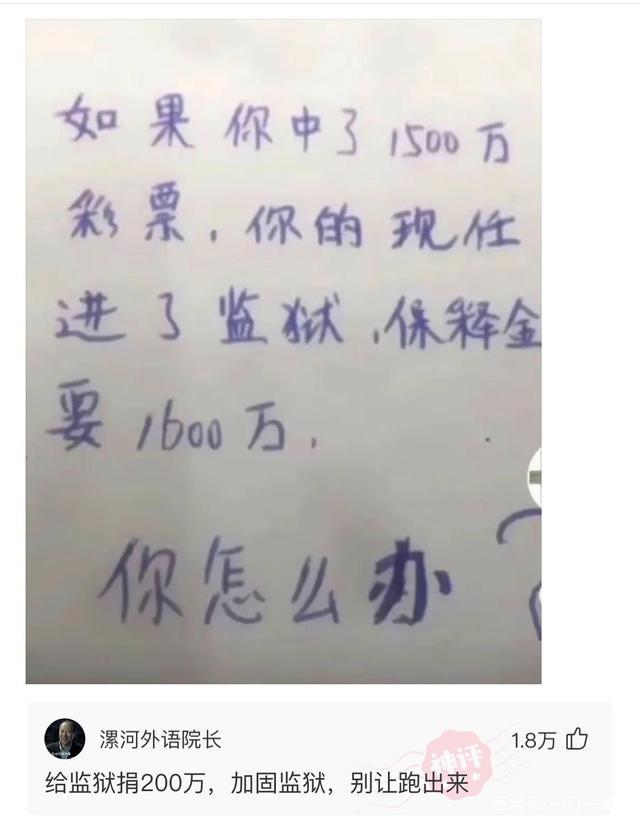 如果你中了1500万
彩票，你的现任
进了监狱，保释金
要1600万．
你怎么办
漯河外语院长
1.8万
神评
给监狱捐200万，加固监狱，别让跑出来